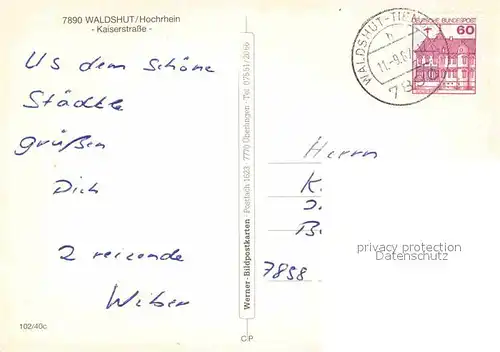 7890 WALDSHUT/Hochrhein
- Kaiserstraße -
Us dem schöne
Städtle
grüßen
Dich
2 reizende
Wiber
102/40c
Werner-Bildpostkarten · Postfach 1623 · 7770 Überlingen · Tel. 07551/2066
C P
WALDSHUT-TIE
h
11.-9.87
789
DEUTSCHE BUNDESPOST
60
Herrn
K.
J.
B.
7898
privacy protection
www.oldthing.de